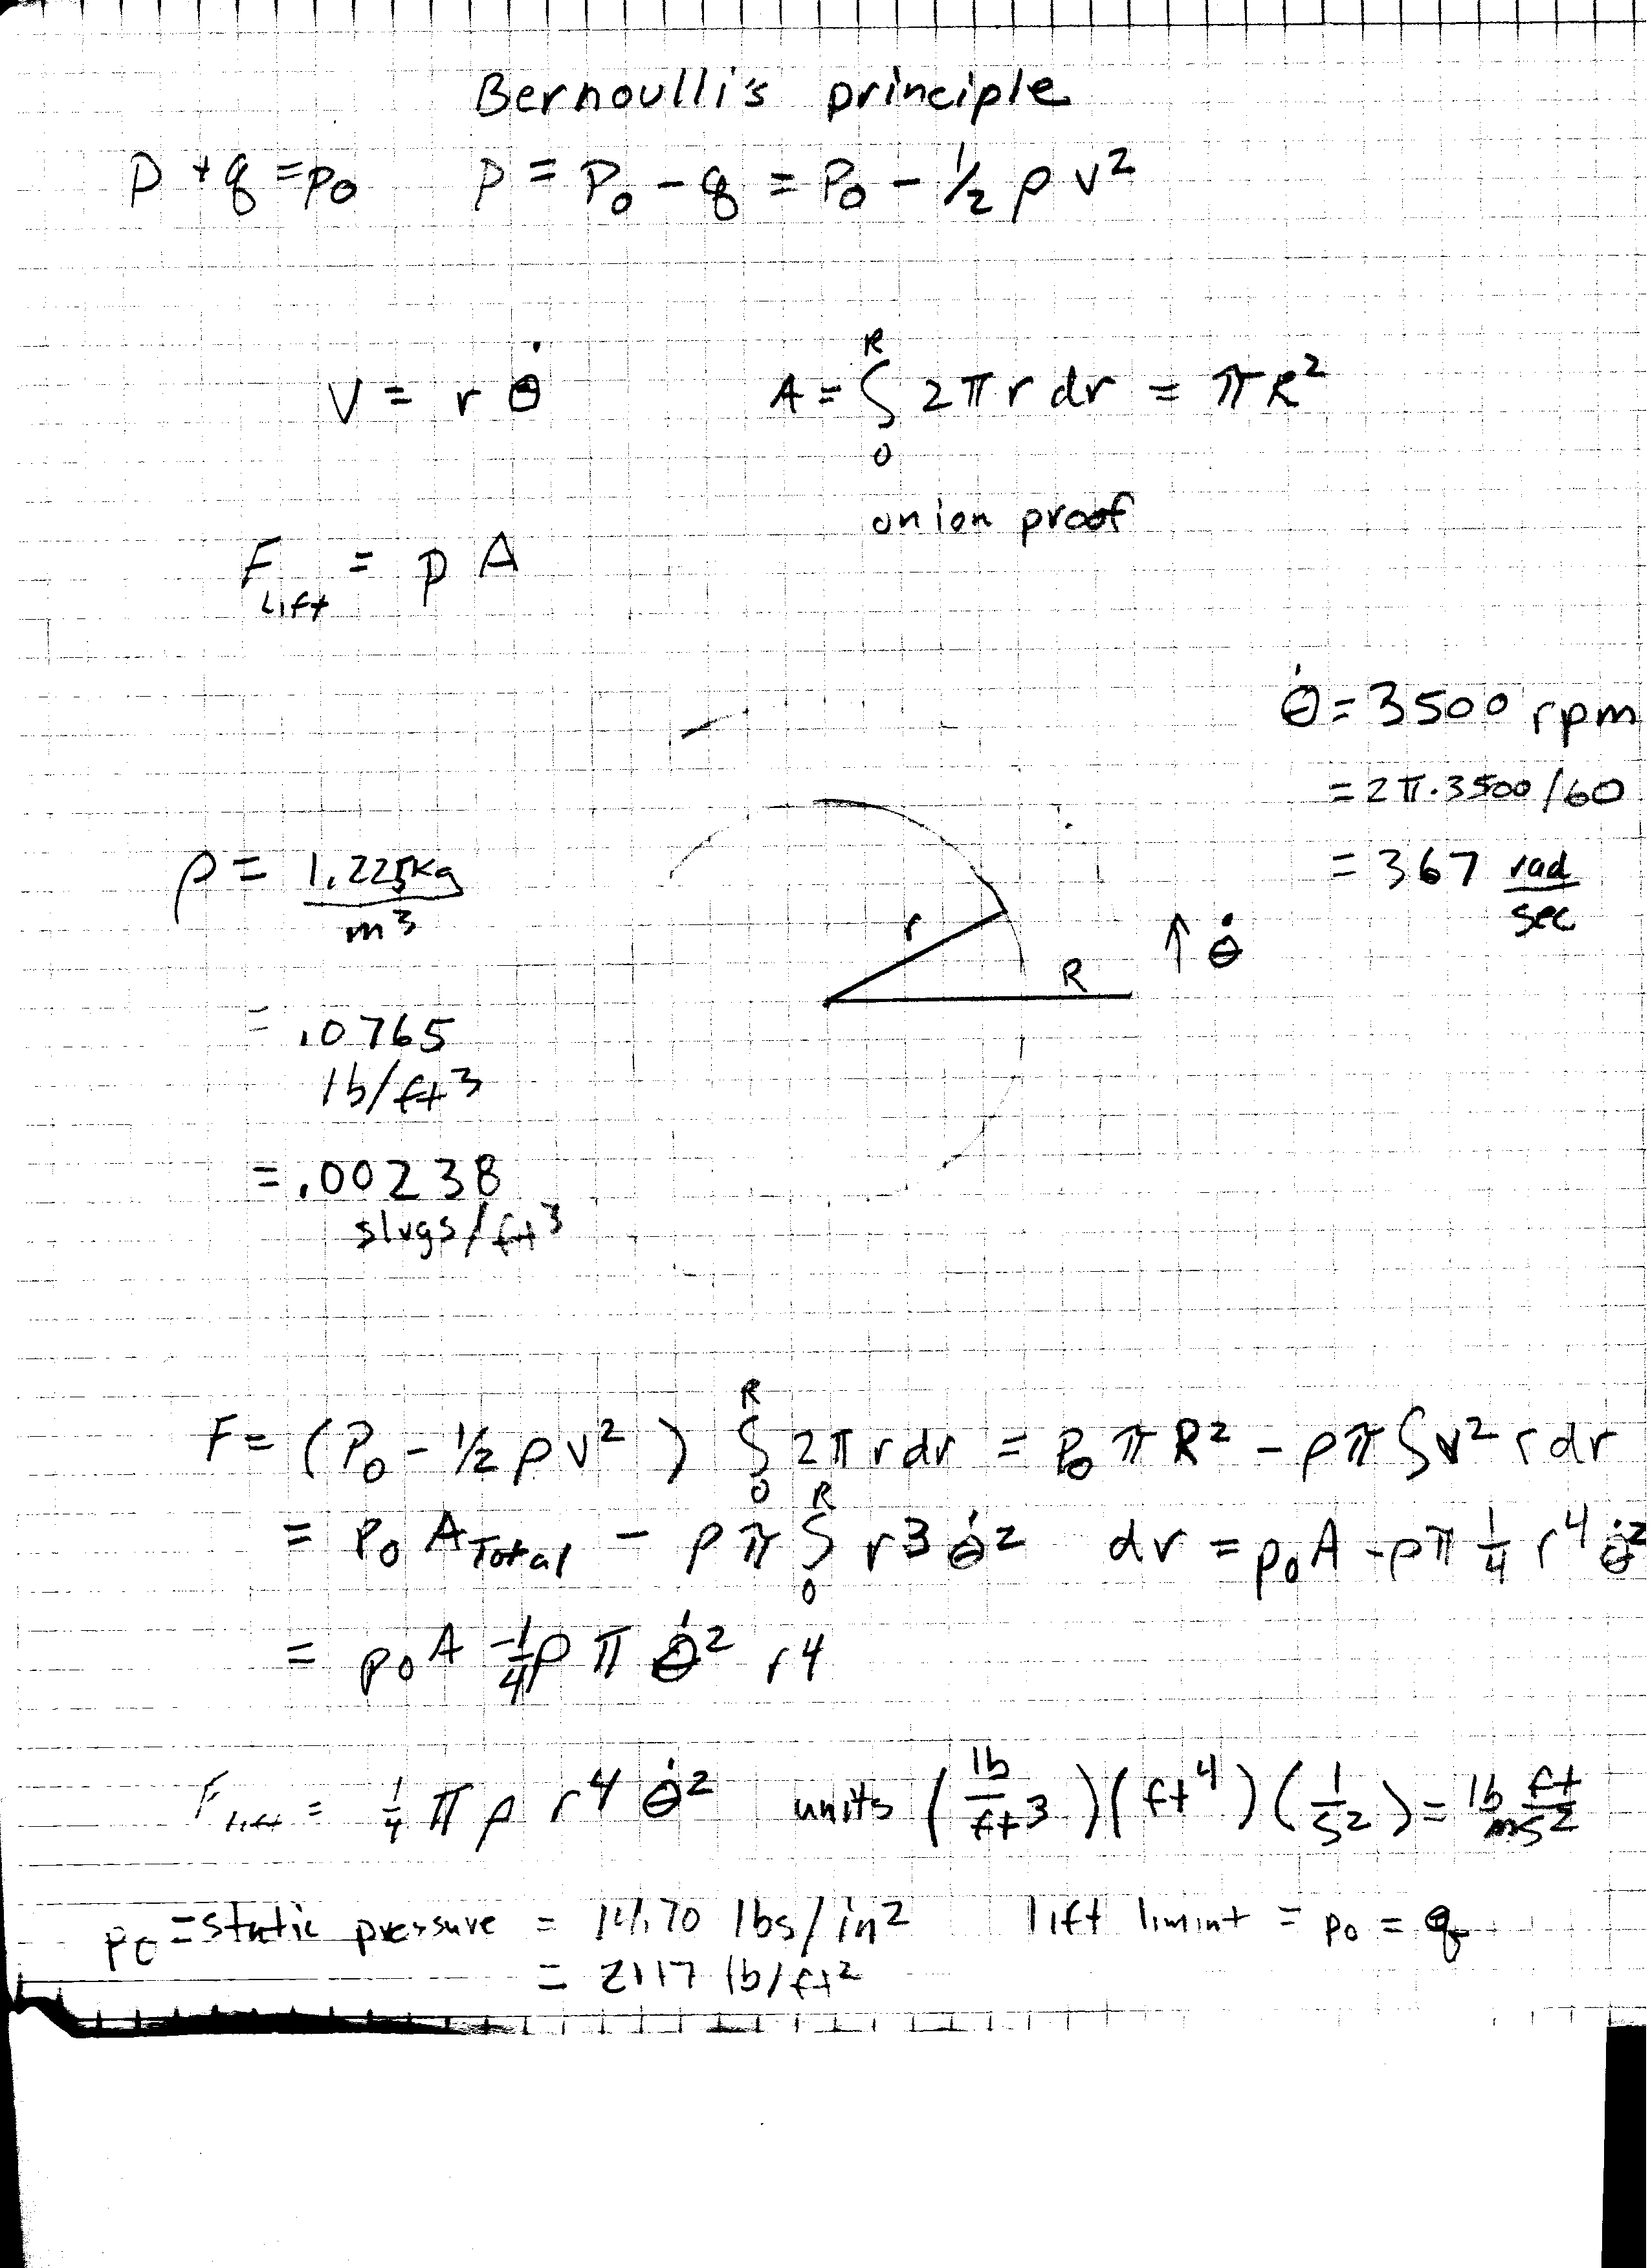 Bernoulli's principle
p + q = p₀   p = P₀ - q = P₀ - 1/2 ρ v²
V = r θ̇   A = ∫₀ᴿ 2πr dr = πR²
onion proof
F_Lift = p A
θ̇ = 3500 rpm
= 2π·3500/60
= 367 rad/sec
ρ = 1.225kg/m³
r
R
↑ θ̇
= .0765
lb/ft³
= .00238
slugs/ft³
F = (P₀ - 1/2 ρ v²) ∫₀ᴿ 2πrdr = P₀ πR² - ρπ∫v² r dr
= P₀ A_Total - ρπ ∫₀ᴿ r³ θ̇² dr = p₀A - ρπ 1/4 r⁴ θ̇²
= p₀A - 1/4 ρ π θ̇² r⁴
F_Lift = 1/4 π ρ r⁴ θ̇²   units (lb/ft³)(ft⁴)(1/s²) = lbm ft/s²
p₀ = static pressure = 14.70 lbs/in²   lift limint = p₀ = q
= 2117 lb/ft²